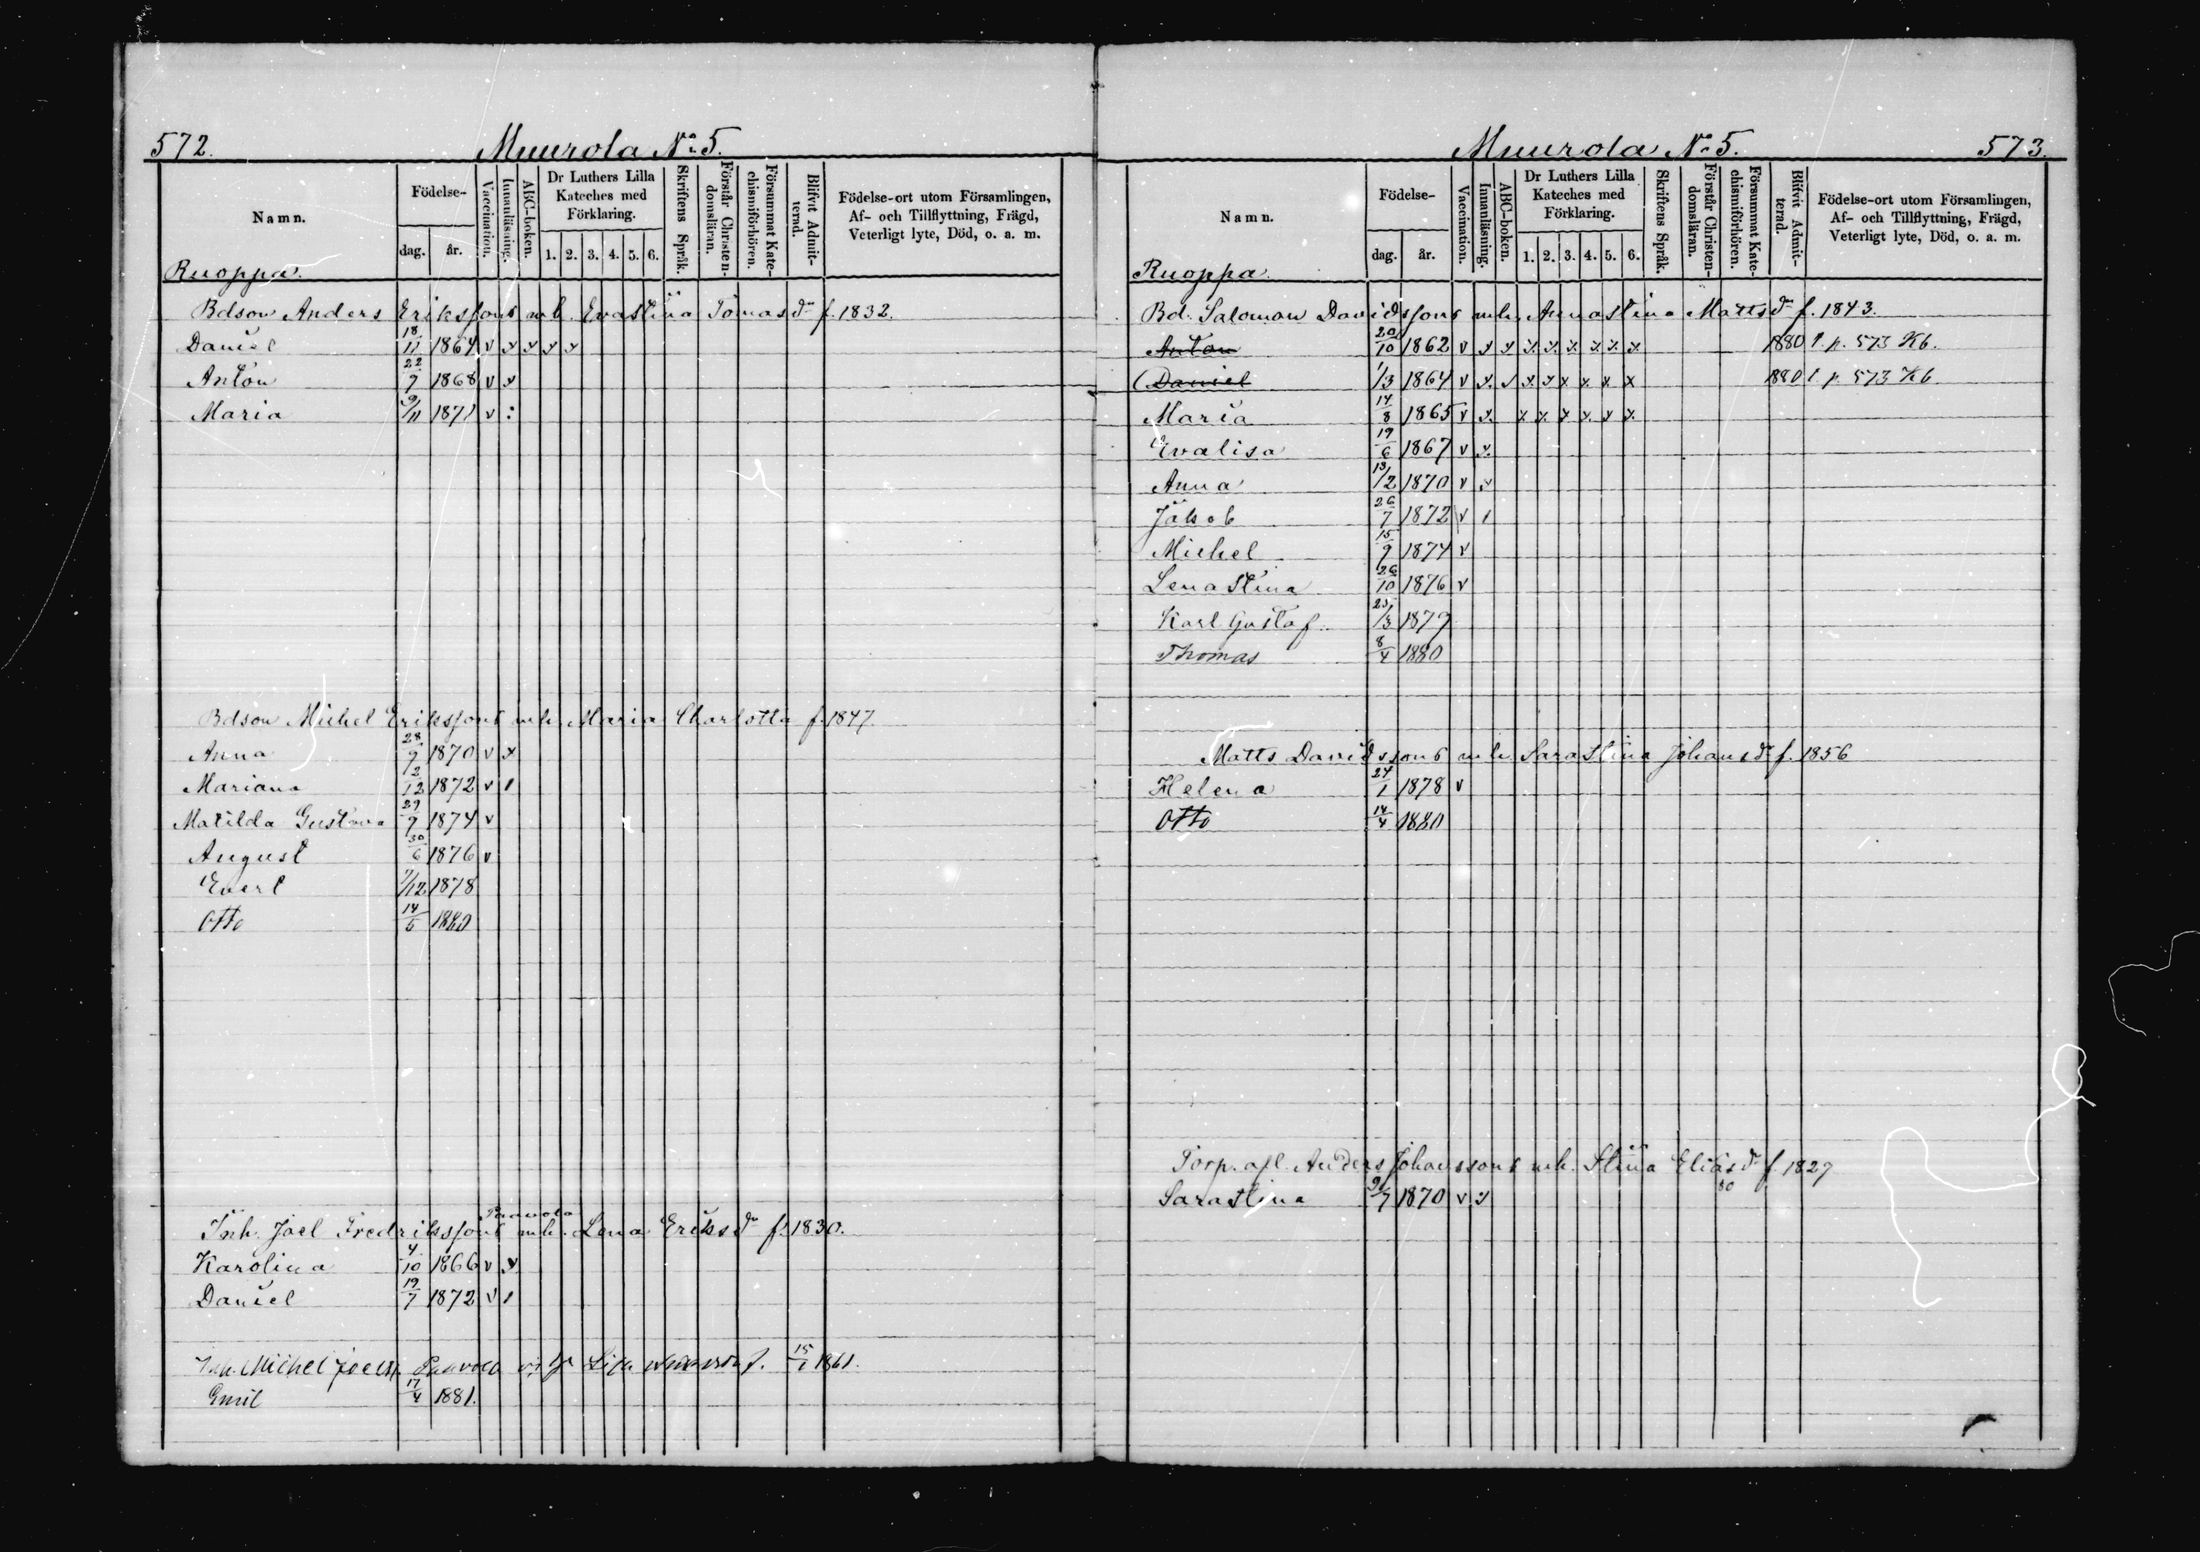 572.
Muurola No 5.
Namn.
Födelse-
dag.
år.
Vaccination.
Innanläsning.
ABC-boken.
Dr Luthers Lilla
Kateches med
Förklaring.
1. 2. 3. 4. 5. 6.
Skriftens Språk.
Förstår Christen-
domsläran.
Försummat Kate-
chismiförhören.
Blifvit Admit-
terad.
Födelse-ort utom Församlingen,
Af- och Tillflyttning, Frägd,
Veterligt lyte, Död, o. a. m.
Ruoppa.
Bdson Anders Erikssons mh. Evastina Tomasdr f. 1832.
Daniel 18/11 1864 v x x x x
Anton 22/7 1868 v x
Maria 9/11 1871 v :
Bdson Michel Erikssons mh. Maria Charlotta f. 1847.
Anna 28/9 1870 v x
Mariana 2/12 1872 v /
Matilda Gustava 29/9 1874 v
August 30/6 1876 v
Evert 7/12 1878
Otto 14/5 1880
Paavola
Inh. Joel Fredrikssons mh. Lena Eriksdr f. 1830.
Karolina 4/10 1866 v x
Daniel 19/7 1872 v /
Inh. Michel Joelss. Paavola Lisa f. 15/1 1861.
Emil 17/4 1881.
Muurola No 5.
573.
Namn.
Födelse-
dag.
år.
Vaccination.
Innanläsning.
ABC-boken.
Dr Luthers Lilla
Kateches med
Förklaring.
1. 2. 3. 4. 5. 6.
Skriftens Språk.
Förstår Christen-
domsläran.
Försummat Kate-
chismiförhören.
Blifvit Admit-
terad.
Födelse-ort utom Församlingen,
Af- och Tillflyttning, Frägd,
Veterligt lyte, Död, o. a. m.
Ruoppa.
Bd. Salomon Davidssons mh. Annastina Mattsdr f. 1843.
Anton 20/10 1862 v x x x x x x x x 1880 l. p. 573 Kb.
(Daniel 1/3 1864 v x x x x x x x x 1880 l. p. 573 Kb.
Maria 14/8 1865 v x x x x x x x
Evalisa 19/6 1867 v x
Anna 13/2 1870 v x
Jakob 26/7 1872 v /
Michel 15/9 1874 v
Lena Stina 26/10 1876 v
Karl Gustaf 25/3 1879
Thomas 8/4 1880
Matts Davidssons mh. Sarastina Johansdr f. 1856
Helena 24/1 1878 v
Otto 14/4 1880
Torp. afl. Anders Johanssons mh. Stina Eliasdr f. 1827
Sarastina 9/7 1870 v x 80